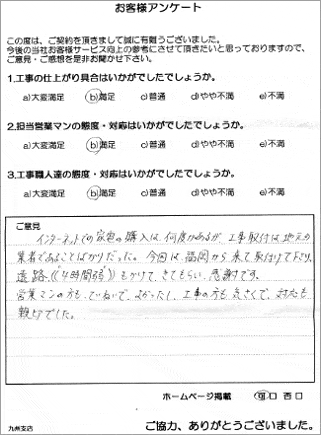 お客様アンケート
この度は、ご契約を頂きまして誠に有難うございました。
今後の当社お客様サービス向上の参考にさせて頂きたいと思っておりますので、
ご意見・ご感想を是非お聞かせ下さい。
1.工事の仕上がり具合はいかがでしたでしょうか。
a)大変満足 b)満足 c)普通 d)やや不満 e)不満
2.担当営業マンの態度・対応はいかがでしたでしょうか。
a)大変満足 b)満足 c)普通 d)やや不満 e)不満
3.工事職人達の態度・対応はいかがでしたでしょうか。
a)大変満足 b)満足 c)普通 d)やや不満 e)不満
ご意見
インターネットでの家電の購入は、何度かあるが、工事取付は地元の
業者であることばかりだった。今回は、福岡から来て取付けて下さり、
遠路（（4時間弱））もかけて、きてもらい、感謝です。
営業マンの方も、ていねいで、よかったし、工事の方も気さくで、対応も
親切でした。
ホームページ掲載 可口 否口
九州支店
ご協力、ありがとうございました。